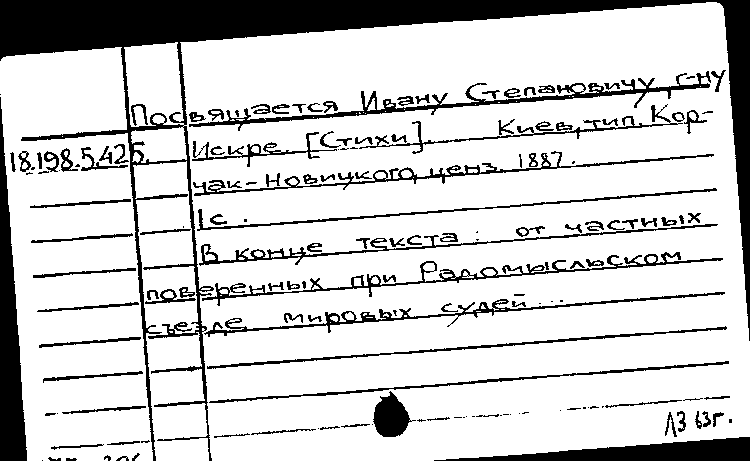 Посвящается Ивану Степановичу, г-ну
18.198.5.425. Искре. [Стихи]. Киев, тип. Кор-
чак-Новицкого, ценз. 1887.
1 с.
В конце текста: от частных
поверенных при Радомысльском
съезде мировых судей...
ЛЗ 63 г.